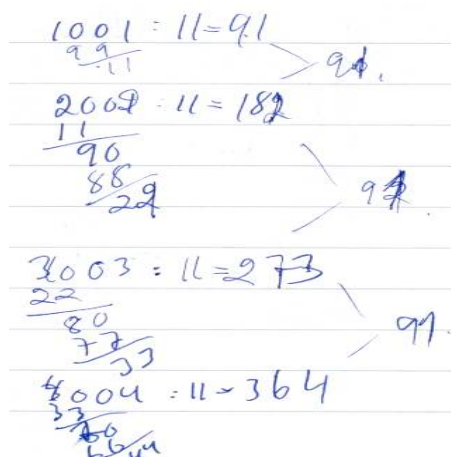 1001 : 11 = 91
99
11
91.
2002 : 11 = 182
11
90
88
22
91.
3003 : 11 = 273
22
80
77
33
91.
4004 : 11 = 364
33
70
66
44